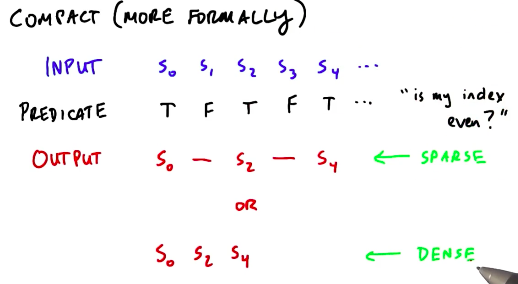 COMPACT (MORE FORMALLY)
INPUT S₀ S₁ S₂ S₃ S₄ ...
PREDICATE T F T F T ... "is my index even?"
OUTPUT S₀ — S₂ — S₄ ← SPARSE
OR
S₀ S₂ S₄ ← DENSE